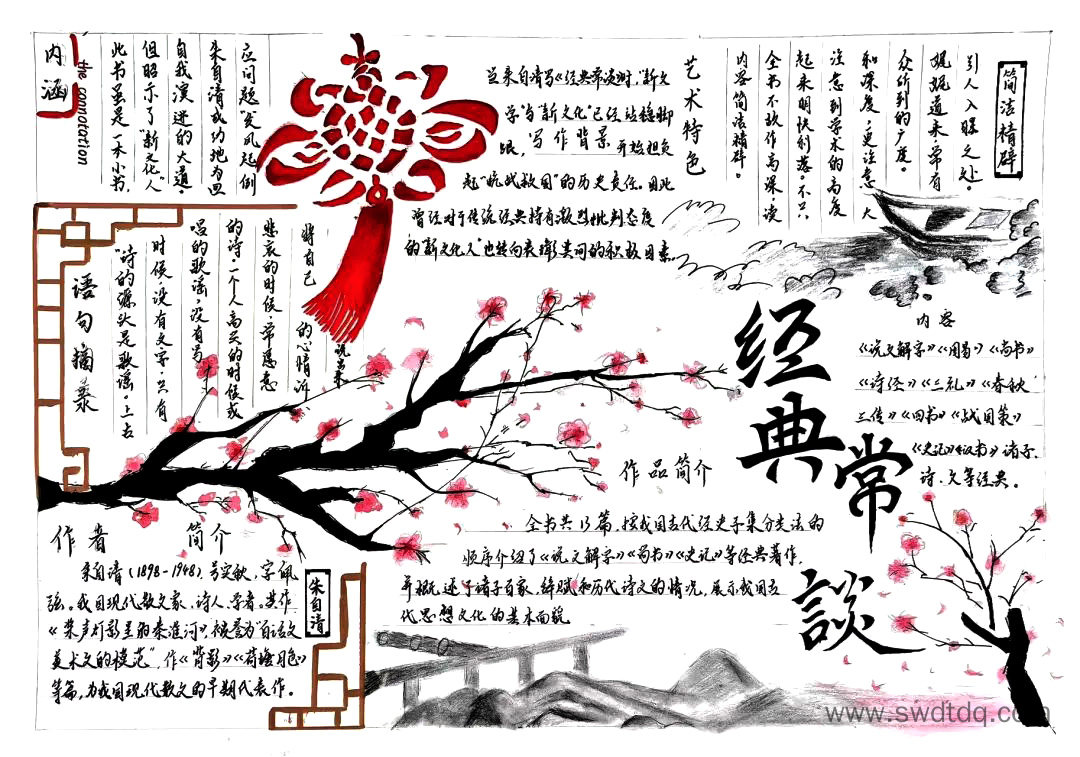 内涵
the connotation
应问题“发风起倒
朱自清成功地为四
自我演进的大道。
但昭示了“新文化人”
此书虽是一本小书，
当朱自清写《经典常谈》时，“新文
学”当“新文化”已经站稳脚
跟，写作背景 开始担负
起“抗战救国”的历史责任。因此
曾经对于传统经典持有激烈批判态度
的“新文化人”也转向表彰其间的积极因素。
艺术特色
简洁精辟
引人入胜之处。
娓娓道来，常有
众所到的广度。
和深度，更注意大
注意到学术的高度
起来明快利落。不只
全书不故作高深，读
内容简洁精辟。
语句摘录
“诗的源头是歌谣。上古
时候，没有文字，只有
唱的歌谣，没有写
的诗。一个人高兴的时候或
悲哀的时候，常愿意
将自己的心情诉
说出来
经典常谈
内容
《说文解字》《周易》《尚书》
《诗经》《三礼》《春秋
三传》《四书》《战国策》
《史记》《汉书》诸子、
诗、文等经典。
作品简介
全书共13篇，按我国古代经史子集分类法的
顺序介绍了《说文解字》《尚书》《史记》等经典著作，
并概述了诸子百家、辞赋和历代诗文的情况，展示我国古
代思想文化的基本面貌
作者简介
朱自清(1898-1948)，号实秋，字佩
弦。我国现代散文家、诗人、学者。其作
《桨声灯影里的秦淮河》，被誉为“白话文
美术文的模范”，作《背影》《荷塘月色》
等篇，为我国现代散文的早期代表作。
朱自清
www.swdtdq.com